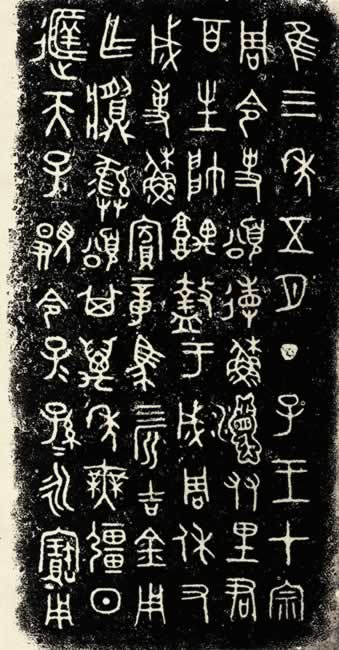 隹三年五月丁子王才宗
周令史頌省穌灋友里君
百生帥堣盩于成周休又
成事穌賓章馬四匹吉金用
乍䵼彝頌其萬年無疆日
天子令子=孫=永寶用